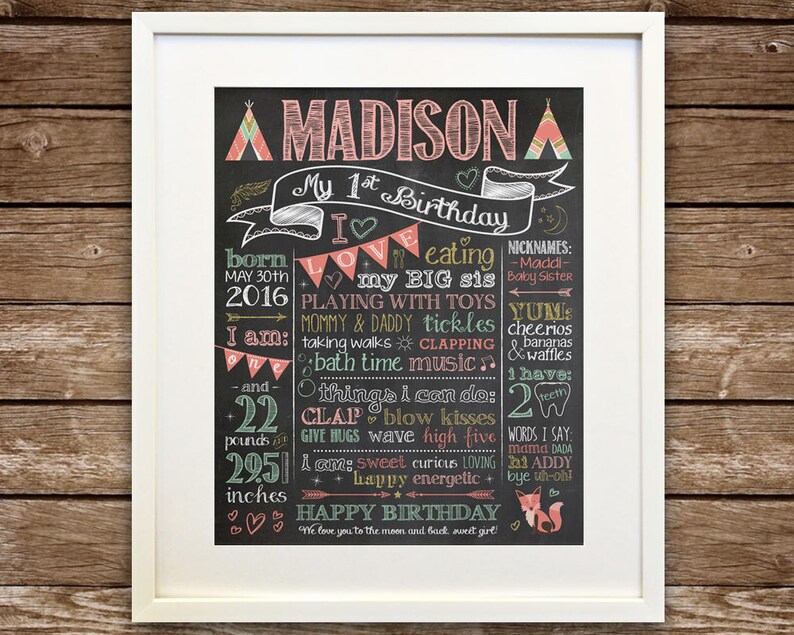 MADISON
My 1st Birthday
born
MAY 30th
2016
I am:
one
and
22
pounds
29.5
inches
I
LOVE
eating
my BIG sis
PLAYING WITH TOYS
MOMMY & DADDY tickles
taking walks CLAPPING
bath time music
things i can do:
CLAP blow kisses
GIVE HUGS wave high five
i am: sweet curious LOVING
happy energetic
HAPPY BIRTHDAY
We love you to the moon and back, sweet girl!
NICKNAMES:
-Maddi-
Baby Sister
YUM:
cheerios
bananas
& waffles
i have:
2 teeth
WORDS I SAY:
mama DADA
hi ADDY
bye uh-oh!